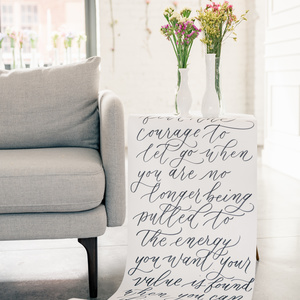 courage to
let go when
you are no
longer being
pulled to
the energy
you want your
value is found
when you can